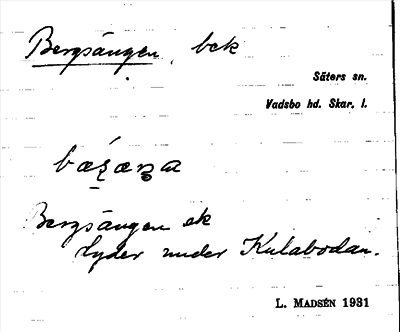 Bergsängen, bek
Säters sn.
Vadsbo hd. Skar. l.
Bergsängen ek
lyder under Kulabodan.
L. MADSÉN 1931